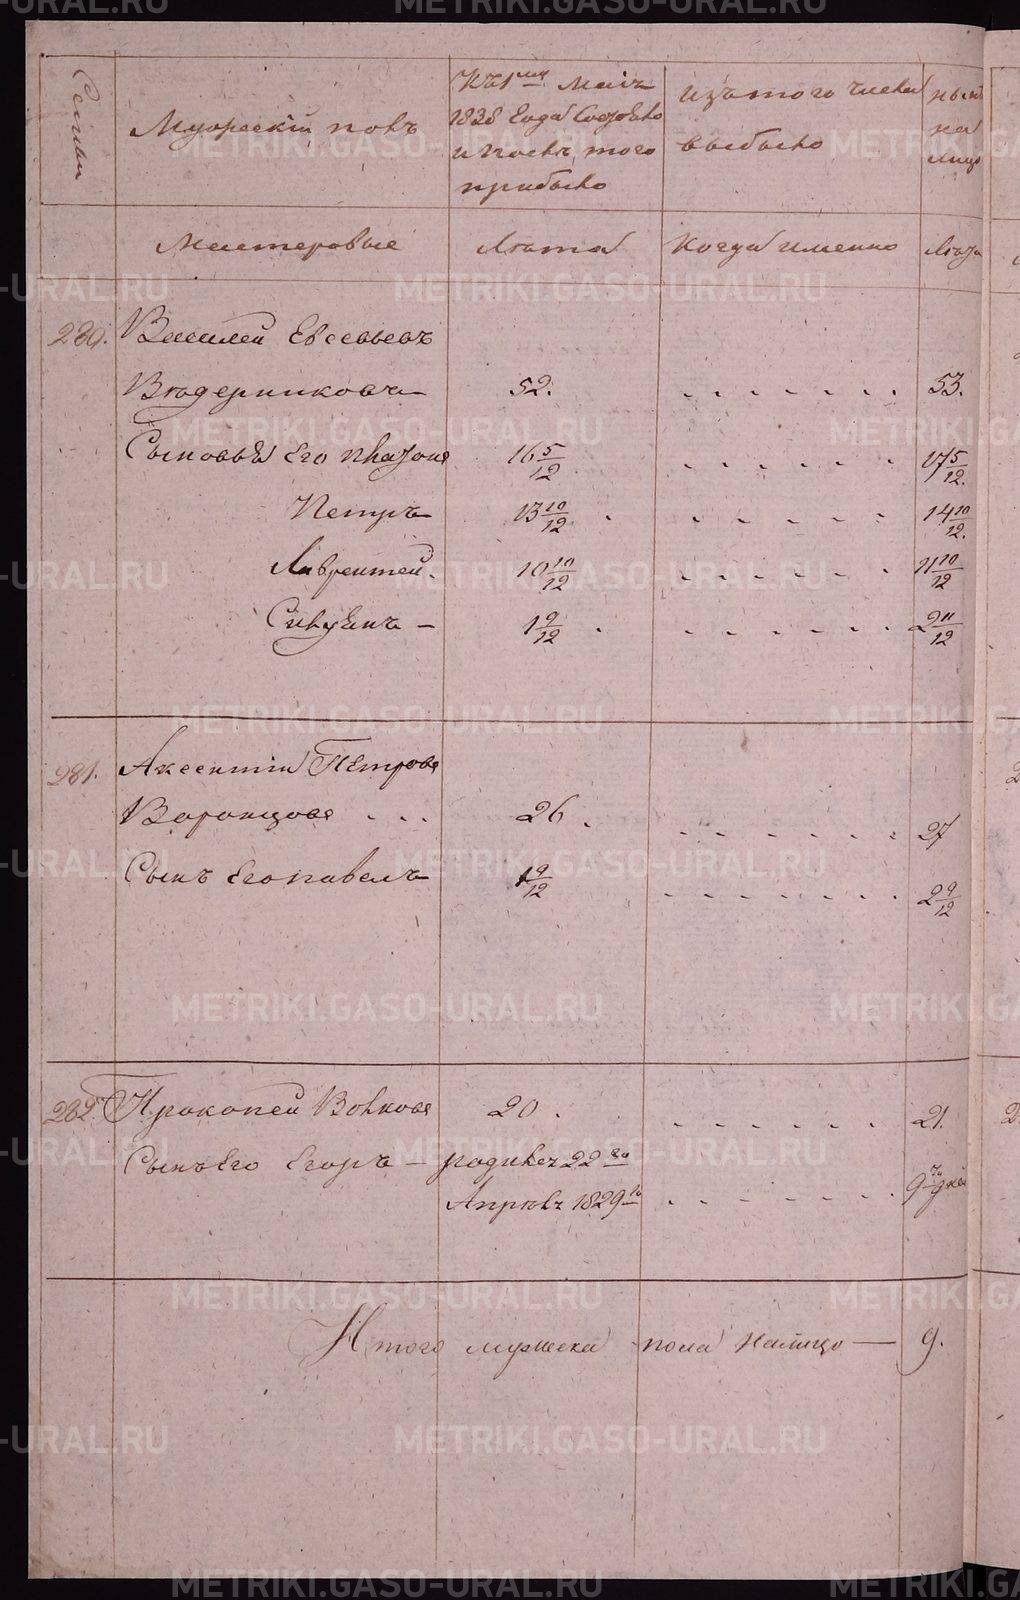 Семьи
Мужескiй полъ
Къ 1му Маiя
1828 Года Состояло
и после того
прибыло
изъ того числа
выбыло
ныне
на
лицо
Мастеровые
Лета
Когда именно
Лета
280.
Василей Евсевьевъ
52.
53.
Сыновья Его
16 5/12
17 5/12.
Петръ
13 10/12
14 10/12.
Лаврентей.
10 10/12
11 10/12
1 9/12
2 11/12
281.
Аксентiй Петровъ
Воронцовъ . . .
26.
27
Сынъ Его Павелъ
1 9/12
2 9/12
282.
Прокопей Волковъ
20.
21.
Сынъ Его Егоръ — родился 22го
Апреля 1829го
9ть дней
Итого мужеска пола налицо — 9.
METRIKI.GASO-URAL.RU